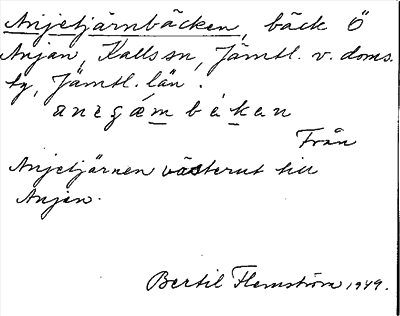 Anjetjärnbäcken, bäck Ö
Anjan, Kalls sn, Jämtl. v. doms.
tg, Jämtl. län.
Från
Anjetjärnen västerut till
Anjan.
Bertil Flemström 1949.